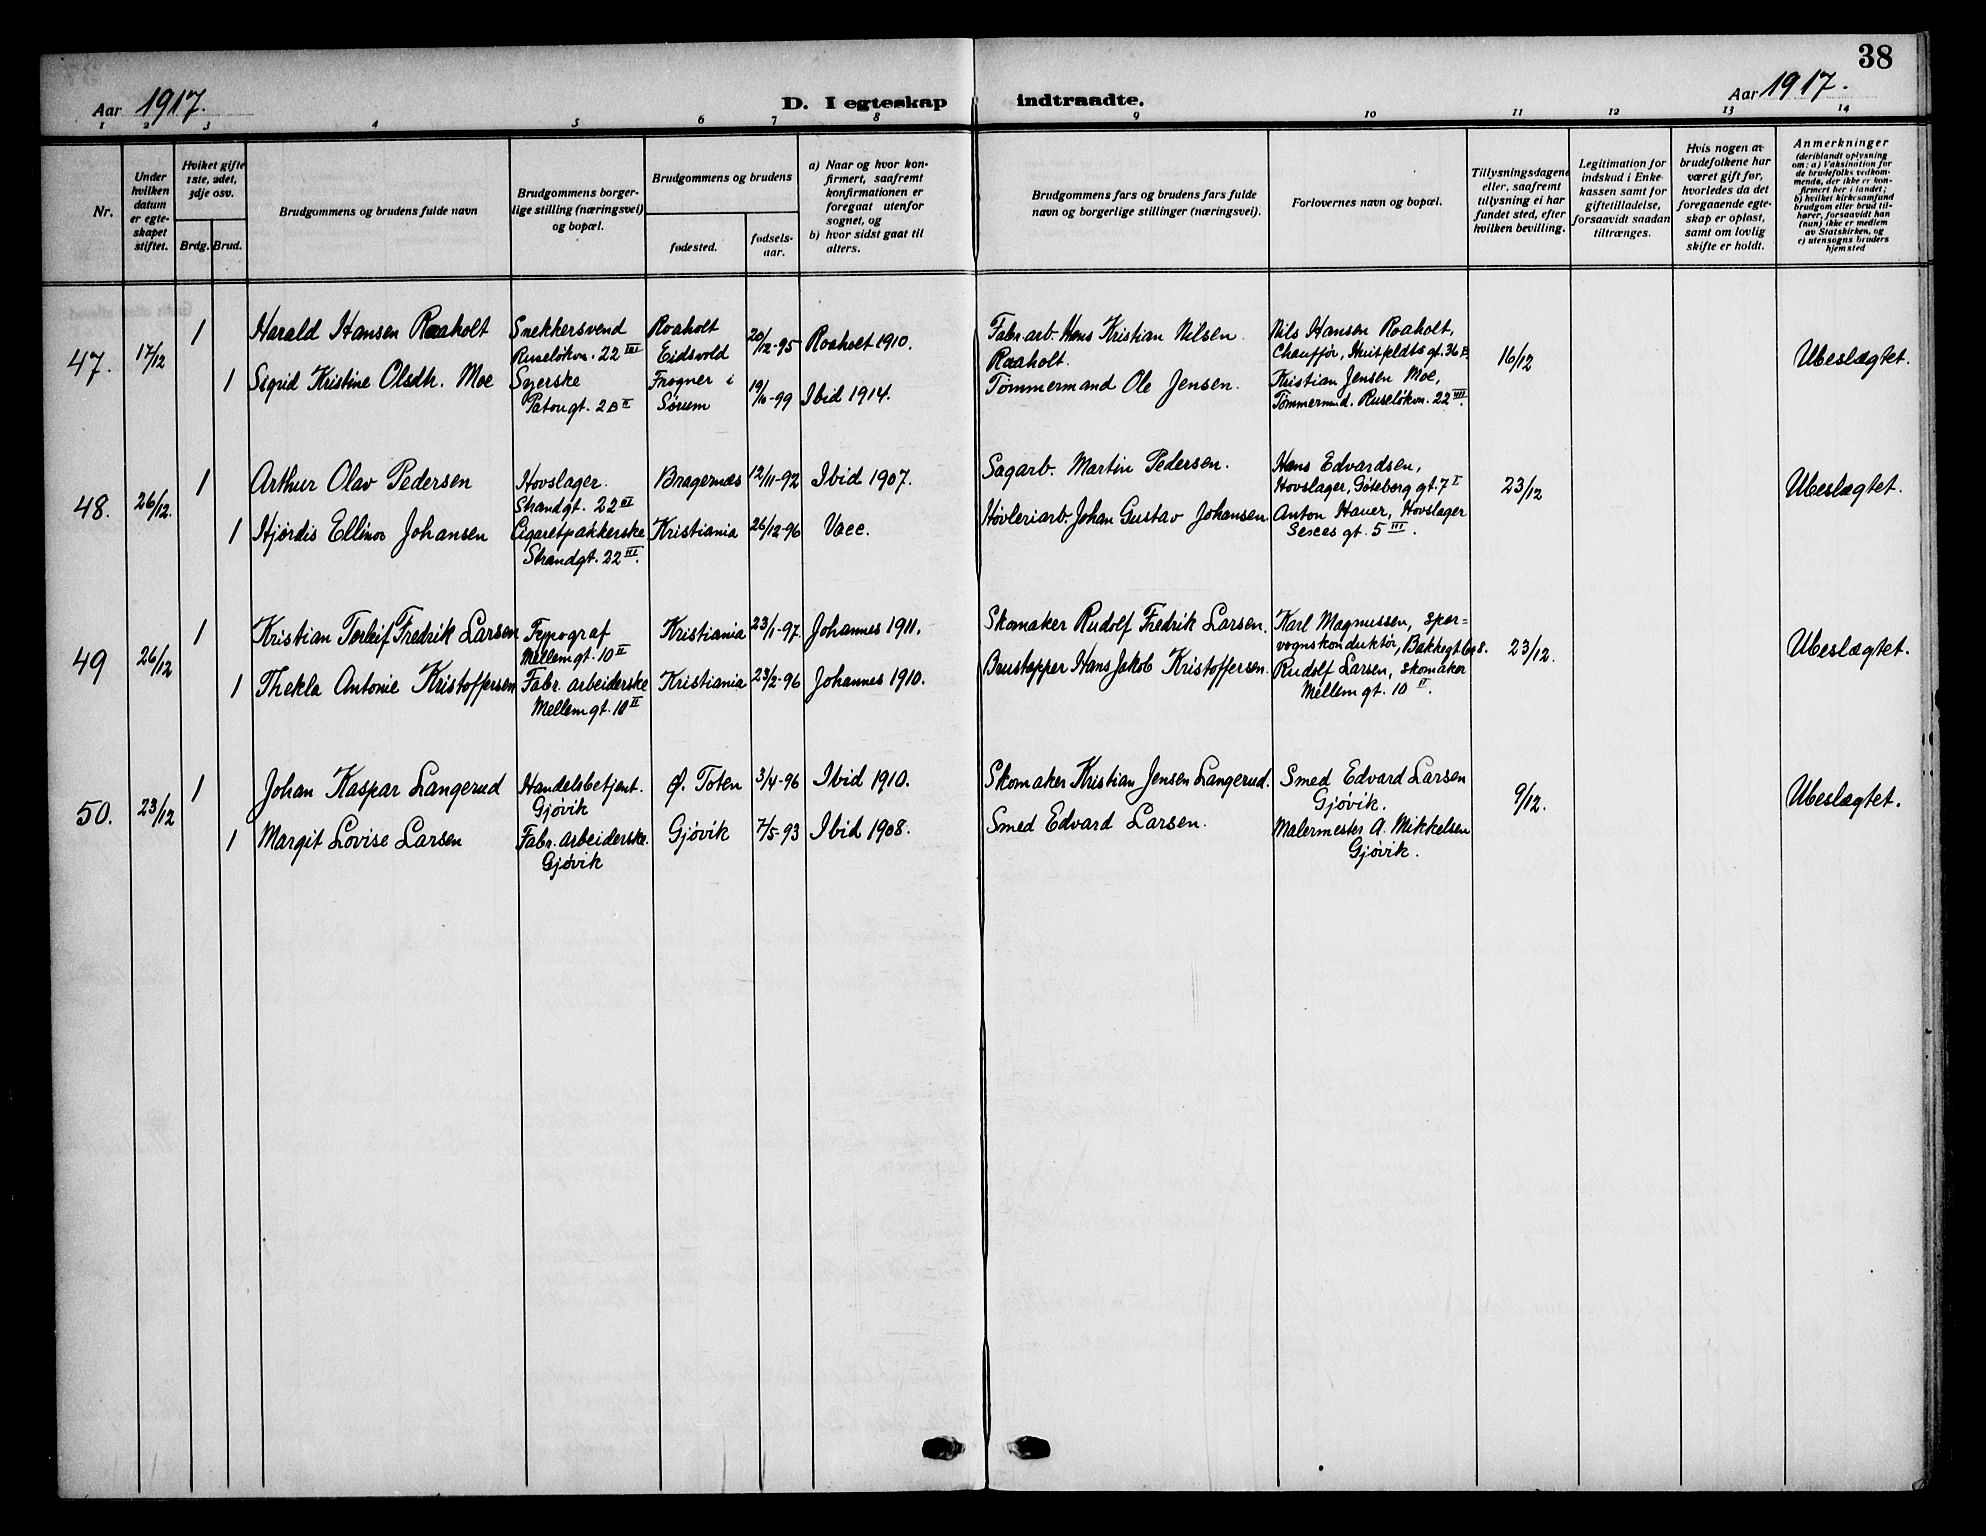 38
Aar 1917.
D. I egteskap indtraadte.
Aar 1917.
1 2 3 4 5 6 7 8 9 10 11 12 13 14
Nr.
Under
hvilken
datum
er egte-
skapet
stiftet.
Hvilket gifte
1ste, 2det,
3dje osv.
Brdg. Brud.
Brudgommens og brudens fulde navn
Brudgommens borger-
lige stilling (næringsvei)
og bopæl.
Brudgommens og brudens
fødested.
fødsels-
aar.
a) Naar og hvor kon-
firmert, saafremt
konfirmationen er
foregaat utenfor
sognet, og
b) hvor sidst gaat til
alters.
Brudgommens fars og brudens fars fulde
navn og borgerlige stillinger (næringsvei).
Forlovernes navn og bopæl.
Tillysningsdagene
eller, saafremt
tillysning ei har
fundet sted, efter
hvilken bevilling.
Legitimation for
indskud i Enke-
kassen samt for
giftetilladelse,
forsaavidt saadan
tiltrænges.
Hvis nogen av
brudefolkene har
været gift før,
hvorledes da det
foregaaende egte-
skap er opløst,
samt om lovlig
skifte er holdt.
Anmerkninger
(deriblandt oplysning
om: a) Vaksination for
de brudefolks vedkom-
mende, der ikke er kon-
firmert her i landet;
b) hvilket kirkesamfund
brudgom eller brud til-
hører, forsaavidt han
(hun) ikke er medlem
av Statskirken, og
c) utensogns bruders
hjemsted
47. 17/12
1 Harald Hansen Raaholt
Snekkersvend
Ruseløkvn. 22 III
Raaholt
Eidsvold
20/12-95
Raaholt 1910.
Fabr.arb. Hans Kristian Nilsen
Raaholt.
Nils Hansen Raaholt,
Chauffør, Huitfeldts gt. 36 B
16/12
Ubeslægtet.
1 Sigrid Kristine Olsdt. Moe
Syerske
2B II
Frogner i
Sørum
-99
Ibid 1914.
Tømmermand Ole Jensen.
Kristian Jensen Moe,
Tømmermd. Ruseløkvn. 22 III.
48. 26/12.
1 Arthur Olav Pedersen
Hovslager.
Strandgt. 22 III
Bragernæs
12/11-92
Ibid 1907.
Sagarb. Martin Pedersen.
Hans Edvardsen,
Hovslager, Gøteborg gt. 7 I
23/12
Ubeslægtet.
1 Hjørdis Ellinor Johansen
Cigaretpakkerske
Strandgt. 22 III.
Kristiania
26/12-96
Vacc.
Høvleriarb. Johan Gustav Johansen.
Anton Hauer, Hovslager
gt. 5 III.
49 26/12
1 Kristian Torleif Fredrik Larsen
Typograf
Mellemgt. 10 II
Kristiania
23/1-97.
Johannes 1911.
Skomaker Rudolf Fredrik Larsen.
Karl Magnussen, spor=
vognskonduktør, Bakkegt.
23/12.
Ubeslægtet.
1 Thekla Antonie Kristoffersen
Fabr. arbeiderske
Mellemgt. 10 II
Kristiania
23/2-96
Johannes 1910.
Brustapper Hans Jakob Kristoffersen.
Rudolf Larsen, skomaker
Mellemgt. 10 II.
50. 23/12
1 Johan Kaspar Langerud
Handelsbetjent.
Gjøvik
Ø. Toten
3/4-96
Ibid 1910.
Skomaker Kristian Jensen Langerud.
Smed Edvard Larsen
Gjøvik.
9/12.
Ubeslægtet.
1 Margit Lovise Larsen
Fabr. arbeiderske.
Gjøvik
Gjøvik
7/5-93
Ibid 1908.
Smed Edvard Larsen.
Malermester A. Mikkelsen
Gjøvik.